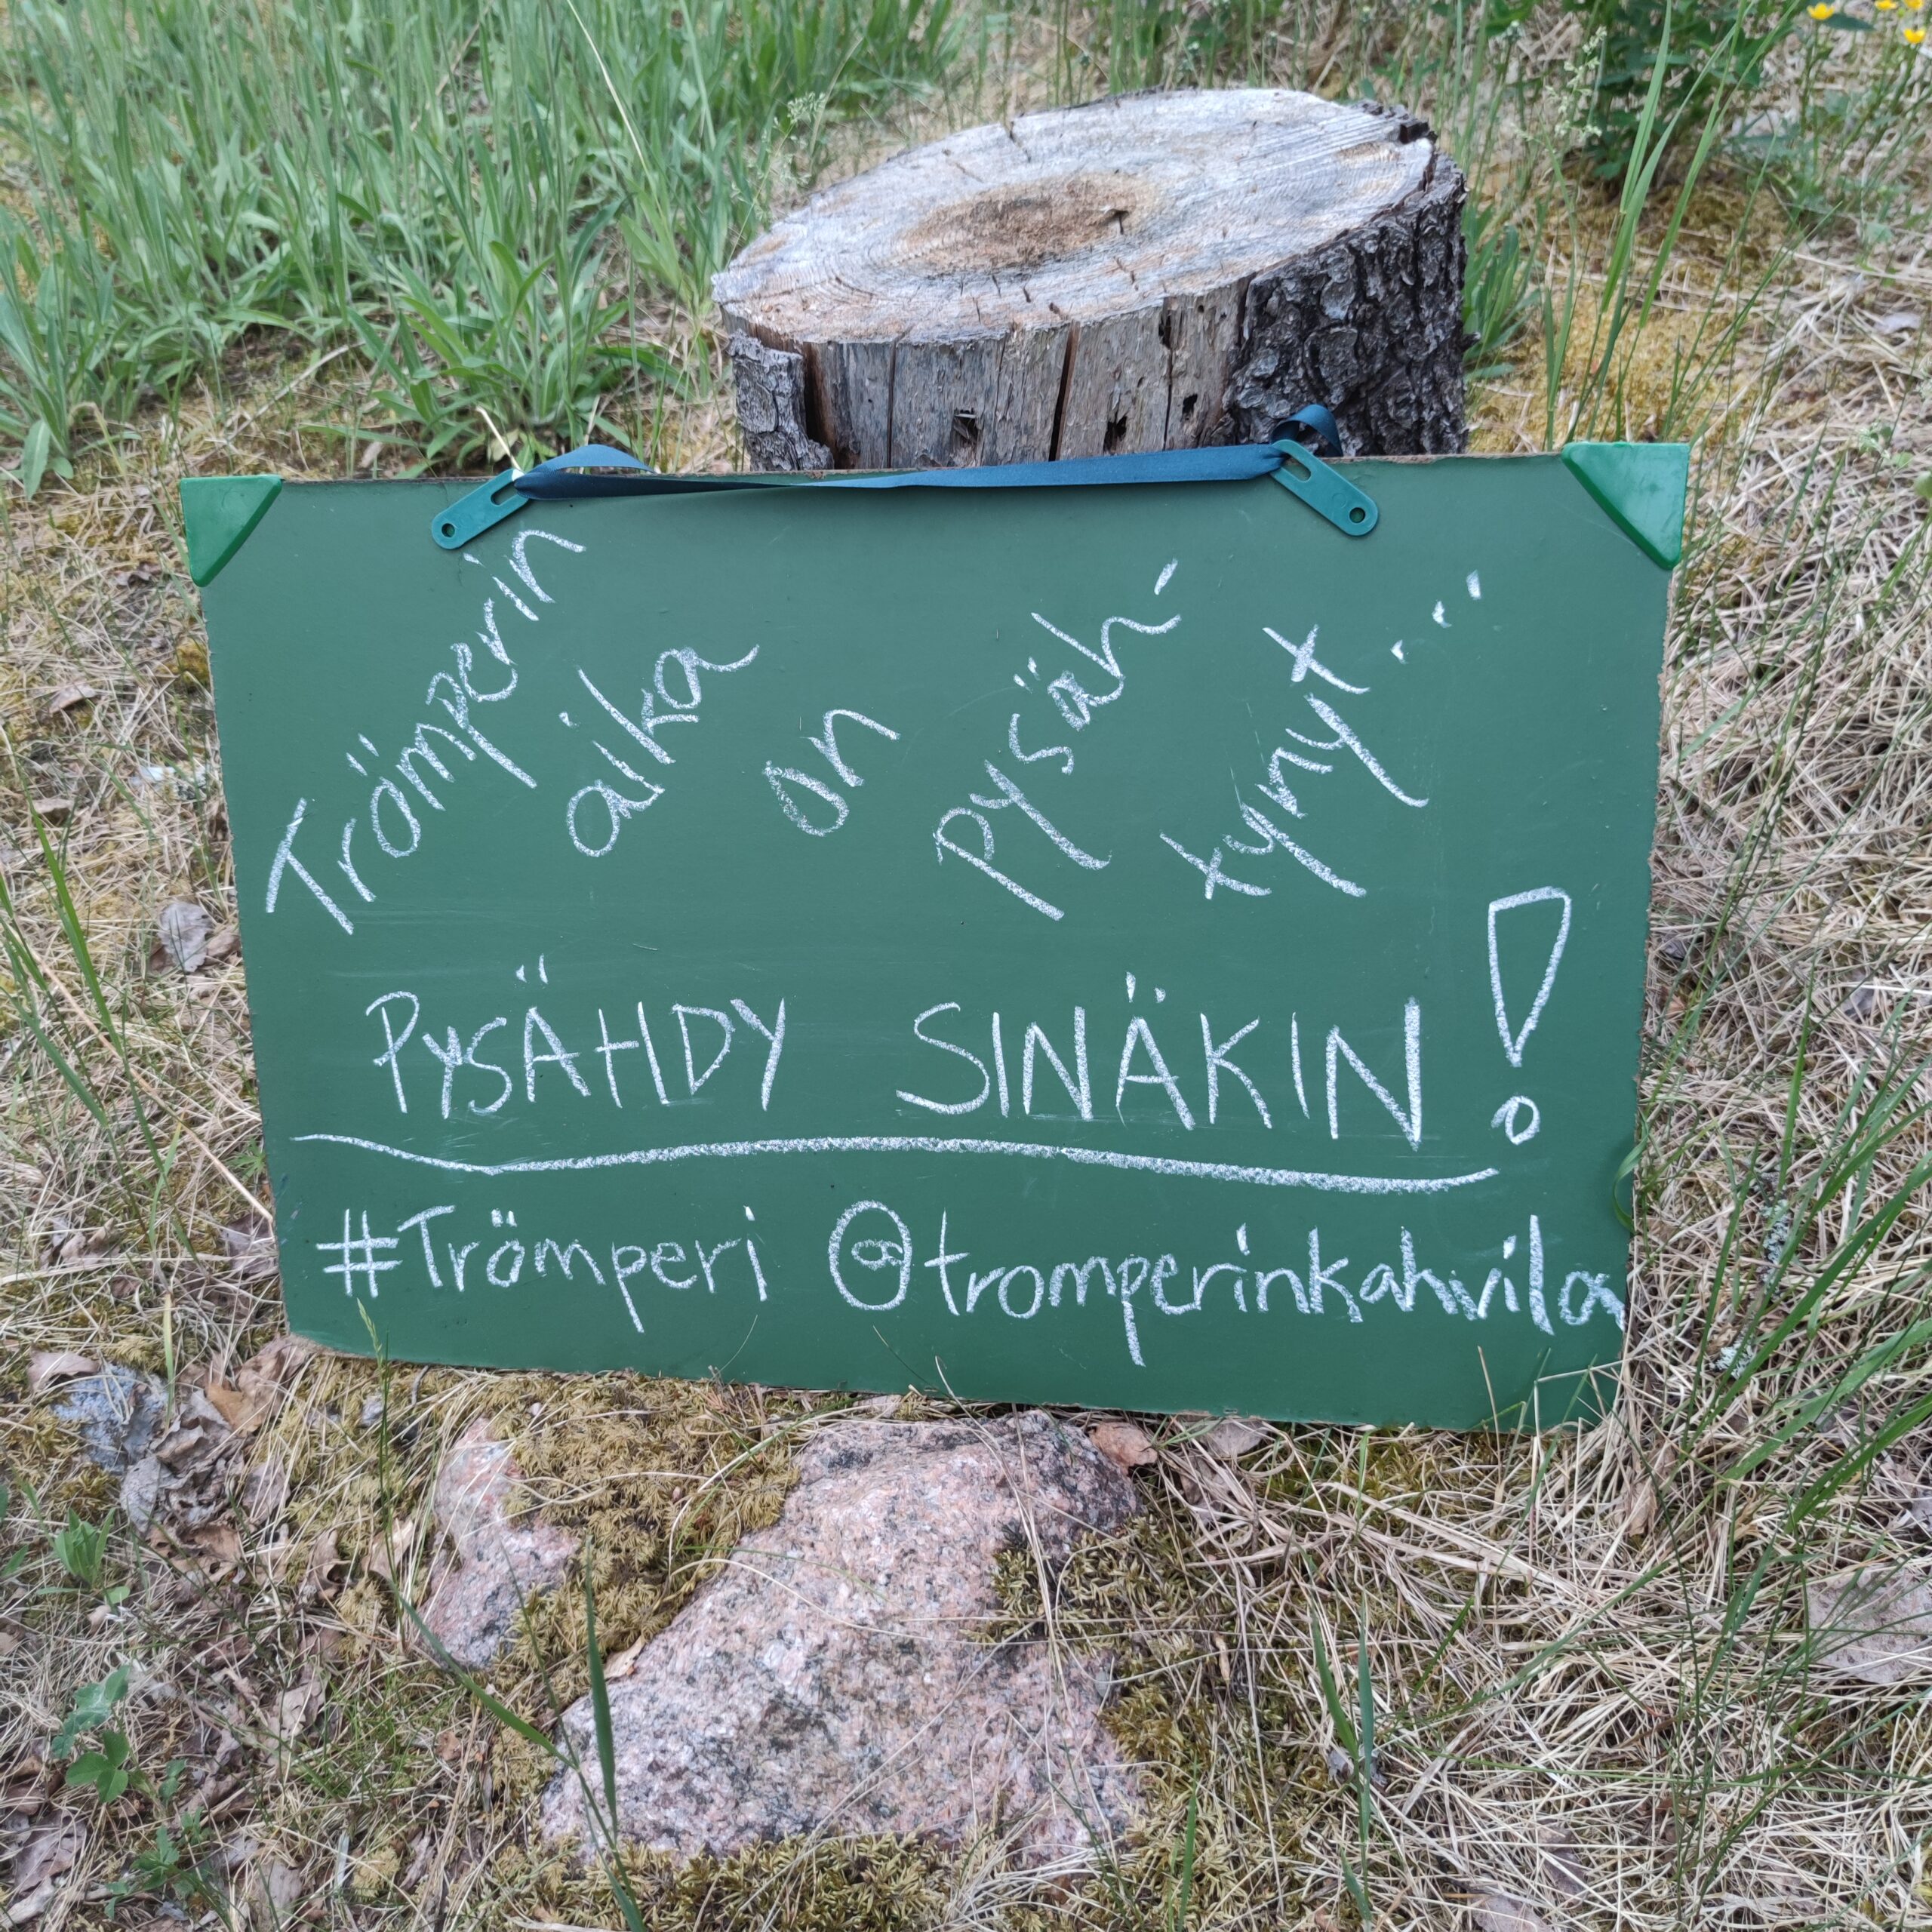 Trömperin aika on pysäh-
tynyt...
PYSÄHDY SINÄKIN!
#Trömperi @tromperinkahvila